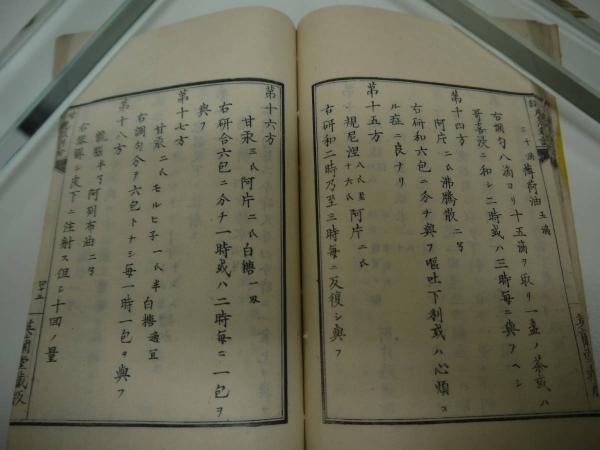 二十滴 薄荷油 五滴
右調勻八滴ヨリ十五滴ヲ取リ一盃ノ茶或ハ
哥喜弗ニ和シ二時或ハ三時毎ニ與フヘシ
第十四方
阿片 二氏 沸騰散 二
右研和六包ニ分チ與フ嘔吐下利或ハ心煩ス
ル症ニ良ナリ
第十五方
規尼涅 八氏至十六氏 阿片 二氏
右研和二時乃至三時毎ニ反復シ與フ
第十六方
甘汞 三氏 阿片 二氏 白糖
右研合六包ニ分チ一時或ハ二時毎ニ一包ヲ
與フ
第十七方
甘汞 二氏 モルヒ子 一氏半 白糖 適宜
右調勻分ヲ六包トナシ毎一時一包ヲ與フ
第十八方
龍脳 半 阿列布油 二
右 シ皮下ニ注射ス但シ十回ノ量
英蘭堂蔵版